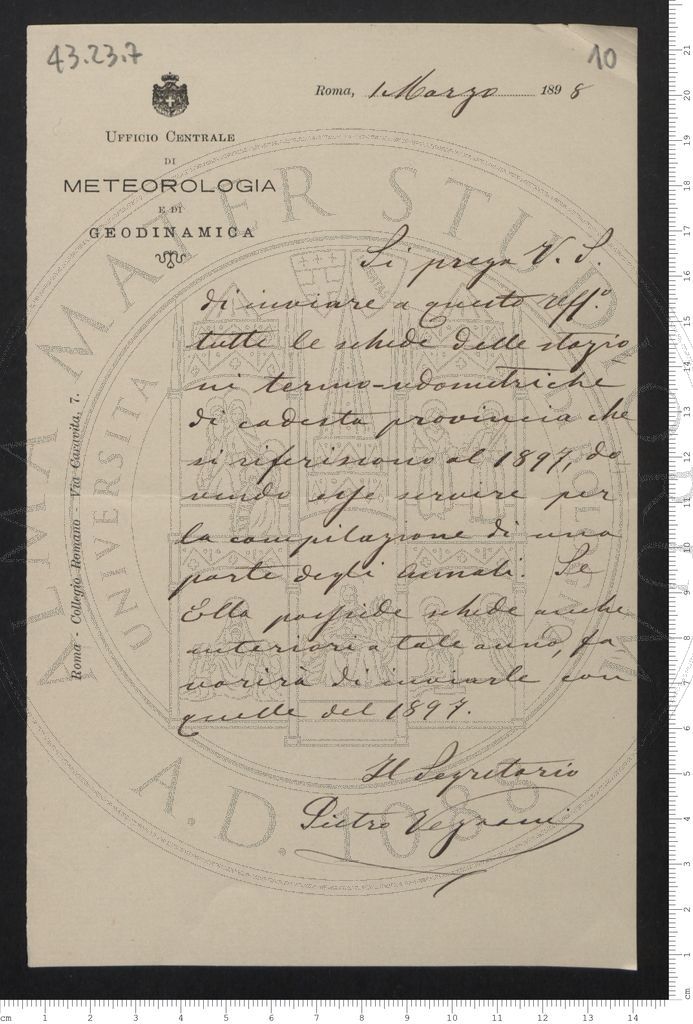 43.23.7
10
Roma, 1 Marzo 1898
UFFICIO CENTRALE
DI
METEOROLOGIA
E DI
GEODINAMICA
Roma - Collegio Romano - Via Caravita, 7.
Si prega V. S.
di inviare a questo Uff.o
tutte le schede delle stazio
ni termo-udometriche
di codesta provincia che
si riferiscono al 1897, do-
vendo esse servire per
la compilazione di una
parte degli Annali. Se
Ella possiede schede anche
anteriori a tale anno, fa
vorirà di inviarle con
quelle del 1897.
Il Segretario
Pietro
ALMA MATER STUDIORUM
UNIVERSITA
A.D. 1088